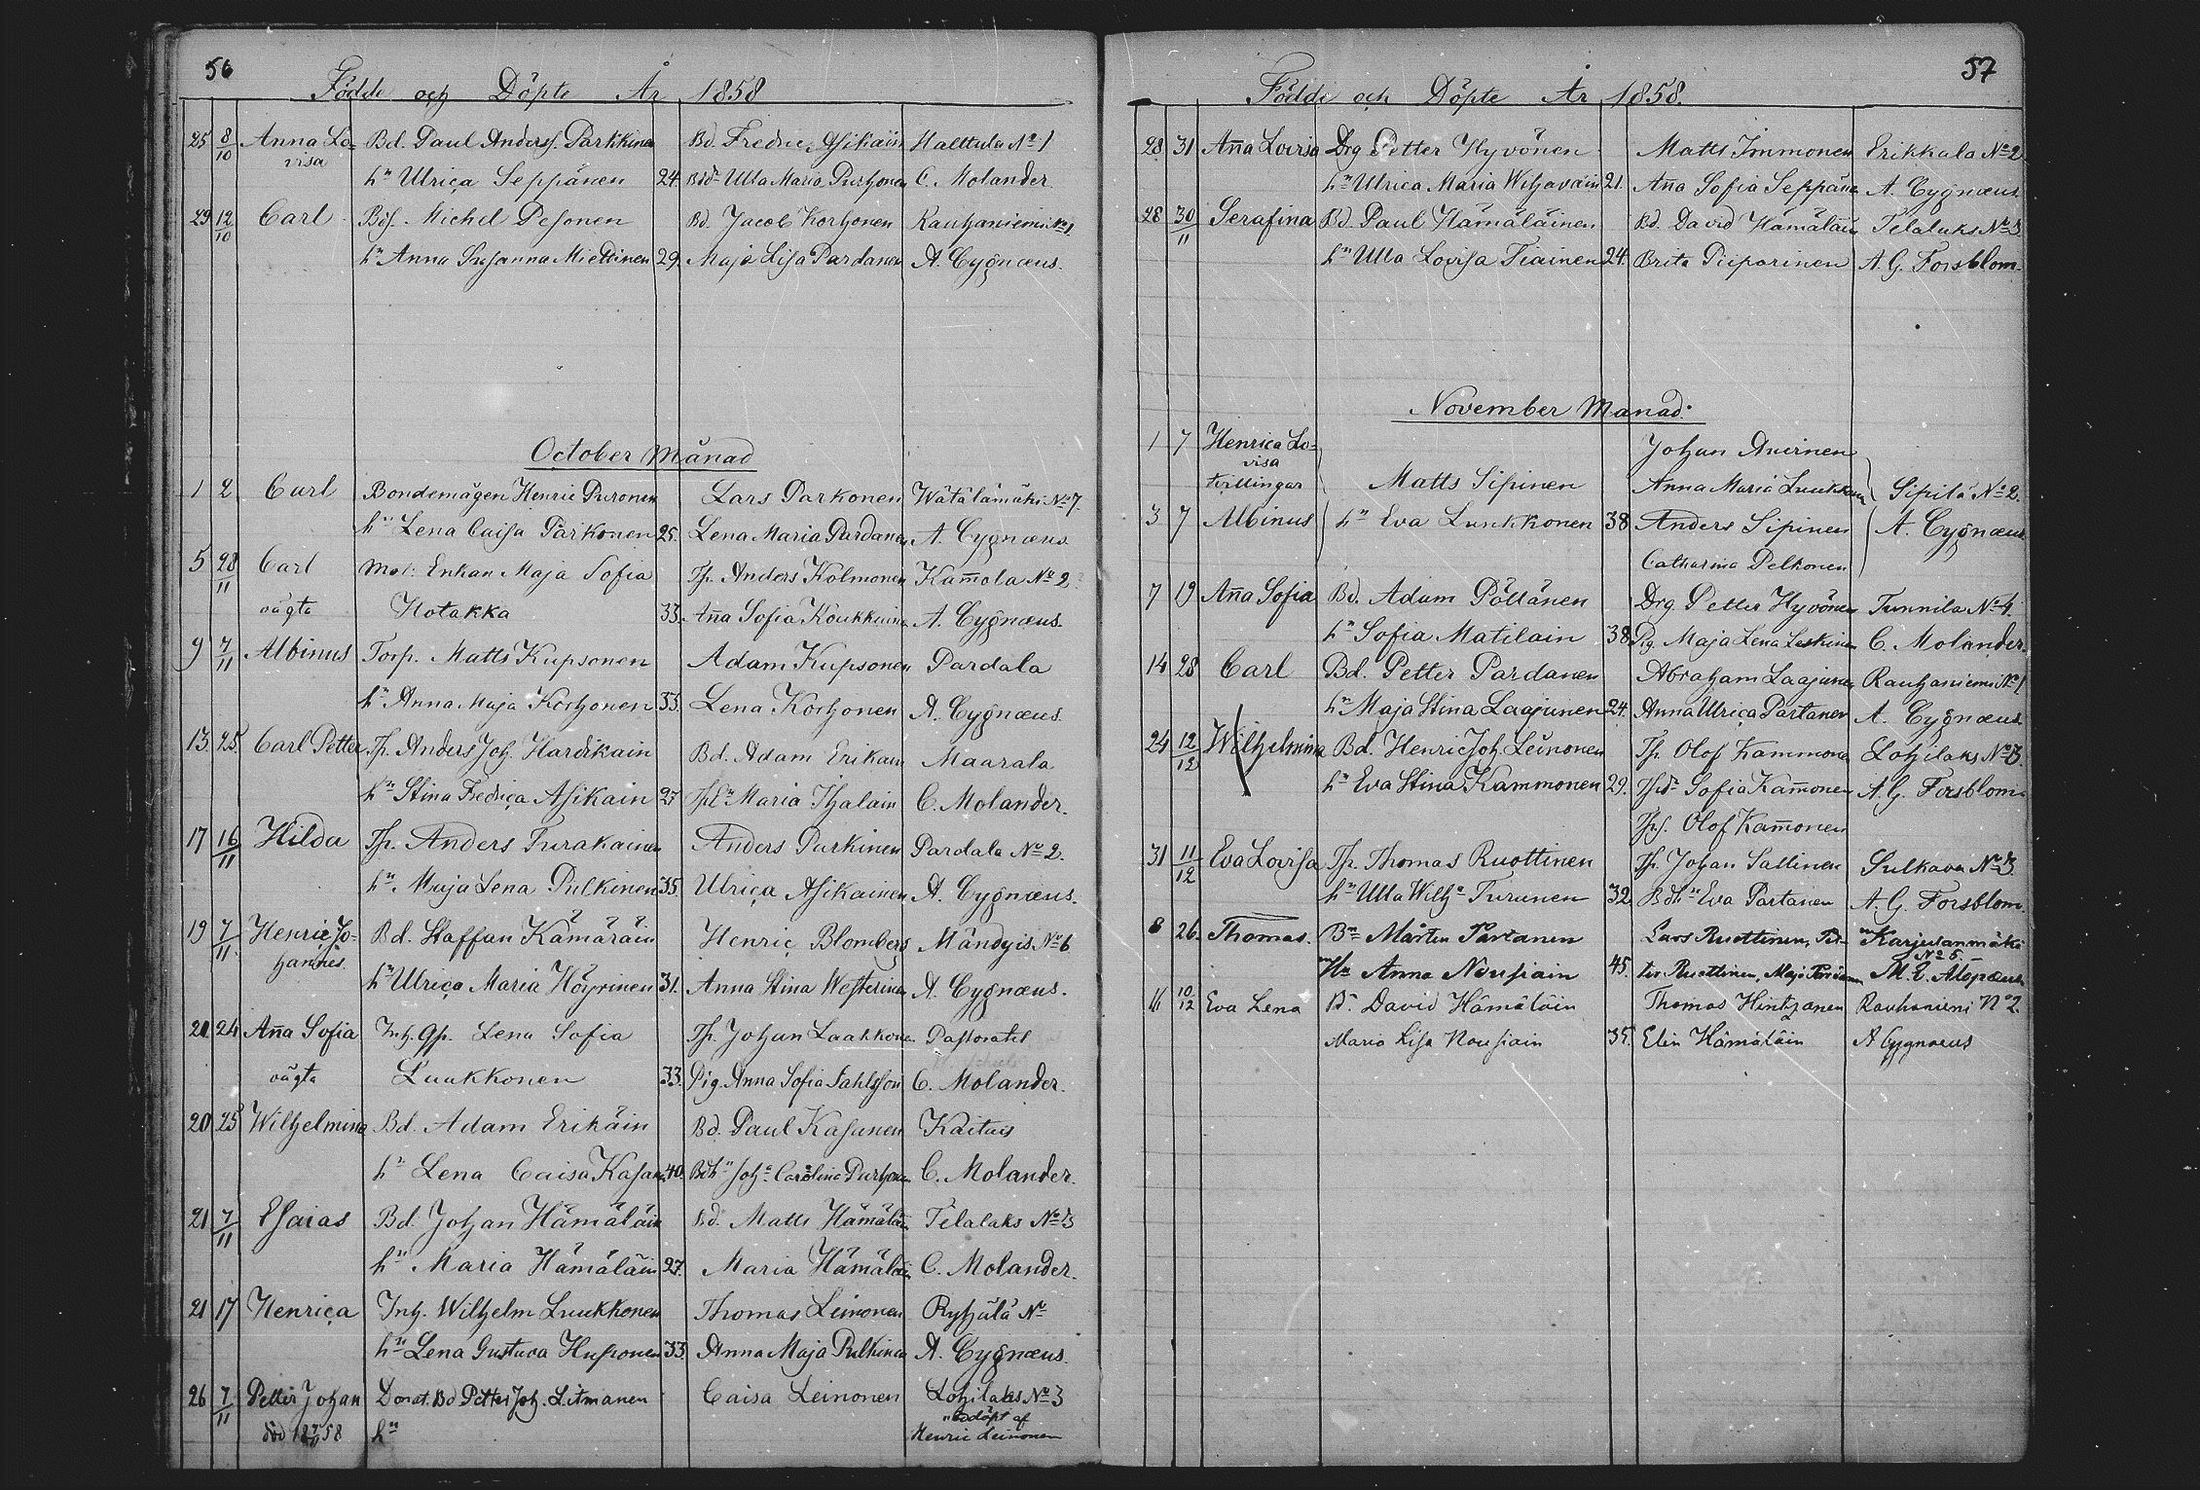 56
Födde och Döpte År 1858
25 8/10 Anna Lo= Bd. Paul Anderss. Parkkinen Bd. Fredric Asikain Halttula No 1
visa
hn Ulrica Seppänen 24. Bdd Ulla Maria Purhonen C. Molander
29 12/10 Carl Bds. Michel Pesonen Bd. Jacob Korhonen Rauhaniemi No 1.
hn Anna Susanna Miettinen 29. Maja Lisa Pardanen A. Cygnæus.
October Månad
1 2 Carl Bondemågen Henric Puronen Lars Parkonen Wätälämäki No 7.
hn Lena Caisa Parkonen 25. Lena Maria Pardanen A. Cygnæus
5 28/11 Carl Enkan Maja Sofia Tp. Anders Kolmonen Kam̄ola No 2
oägta Hotakka 33. An̄a Sofia A. Cygnæus.
9 7/11 Albinus Torp. Matts Kupsonen Adam Kupsonen Pardala
hn Anna Maja Korhonen 33. Lena Korhonen A. Cygnæus.
13. 25. Carl Petter Tp. Anders Joh. Hardikain Bd. Adam Erikain Maarala
hn Stina Fredrica Asikain 25 Maria Ihalain C. Molander.
17 16/11 Hilda Tp. Anders Turakainen Anders Parkinen Pardala No 2.
hn. Maja Lena Pulkinen 35. Ulrica Asikainen A. Cygnæus.
19 7/11 Henric Jo= Bd. Staffan Kämäräin Henric Blomberg Mändyis. No 6
hannes.
hn Ulrica Maria Höyrinen 31. Anna Stina Westerinen A. Cygnæus.
20 24 An̄a Sofia Inh. Lena Sofia Tp. Johan Laakkonen Pastoratet
oägta Luukkonen 33. Pig. Anna Sofia C. Molander.
20 25 Wilhelmina Bd. Adam Erikäin Bd. Paul Kasunen Kaituis
hn Lena Caisa 40. Bdhn Joha Carolina Purhonen C. Molander.
21 7/11 Esaias Bd. Johan Hämäläin Bd. Matts Hämäläin Telalaks No 3
hn Maria Hämäläin 27. Maria Hämäläin C. Molander.
21 17 Henrica Inh. Wilhelm Luukkonen Thomas Leinonen Ryhälä No
hn Lena Gustava 33. Anna Maja Pulkinen A. Cygnæus.
26 7/11 Petter Johan Donat. Bd Petter Joh. Litmanen Caisa Leinonen Lohilaks No 3
nödöpt af
död 58 hn Henric Leinonen
57
Födde och Döpte År 1858.
28. 31 An̄a Lovisa Drg Petter Hyvönen Matts Immonen Erikkala No 2
hn Ulrica Maria Wihavain 21. An̄a Sofia Seppänen A. Cygnæus
28 30/11 Serafina Bd. Paul Hämäläinen Bd. David Hämäläin Telalaks No 3
hn Ulla Lovisa Tiainen 24. Brita Piiparinen A. G. Forsblom.
November Månad.
1 7 Henrica Lo= Johan
visa
tvillingar Matts Sipinen Anna Maria Luukkonen Sipilä No 2.
3 7 Albinus hn Eva Luukkonen 38 Anders Sipinen A. Cygnæus
Catharina Pelkonen
7 19 An̄a Sofia Bd. Adam Pöllänen Drg Petter Hyvönen Tunnila No 4.
hn Sofia Matilain 38. Pig. Maja Lena Laskinen C. Molander.
14 28 Carl Bd. Petter Pardanen Abraham Laajunen Rauhaniemi No 1
hn Maja Stina Laajunen 24. Anna Ulrica Partanen A. Cygnæus
24 12/12 Wilhelmina Bd. Henric Joh. Leinonen Tp. Olof Kammonen Lohilaks No 3.
hn Eva Stina Kammonen 29. Sofia Kam̄onen A. G. Forsblom
Olof Kam̄onen
31 11/12 Eva Lovisa Tp. Thomas Ruottinen Tp. Johan Sallinen Sulkava No 3
hn Ulla Wilha Turunen 32 Bdhn Eva Partanen A. G. Forsblom.
8 26. Thomas. Bn Mårten Partanen Lars Ruottinen, Pet- Karjulanmäki
No 5.
Hn Anna Nousiain 45. ter Ruottinen, Maja M. E. Alopæus
16 10/12 Eva Lena Bn David Hämäläin Thomas Hintzanen Rauhaniemi No 2.
Maria Lisa Nousiain 35. Elin Hämäläin A Cygnaeus